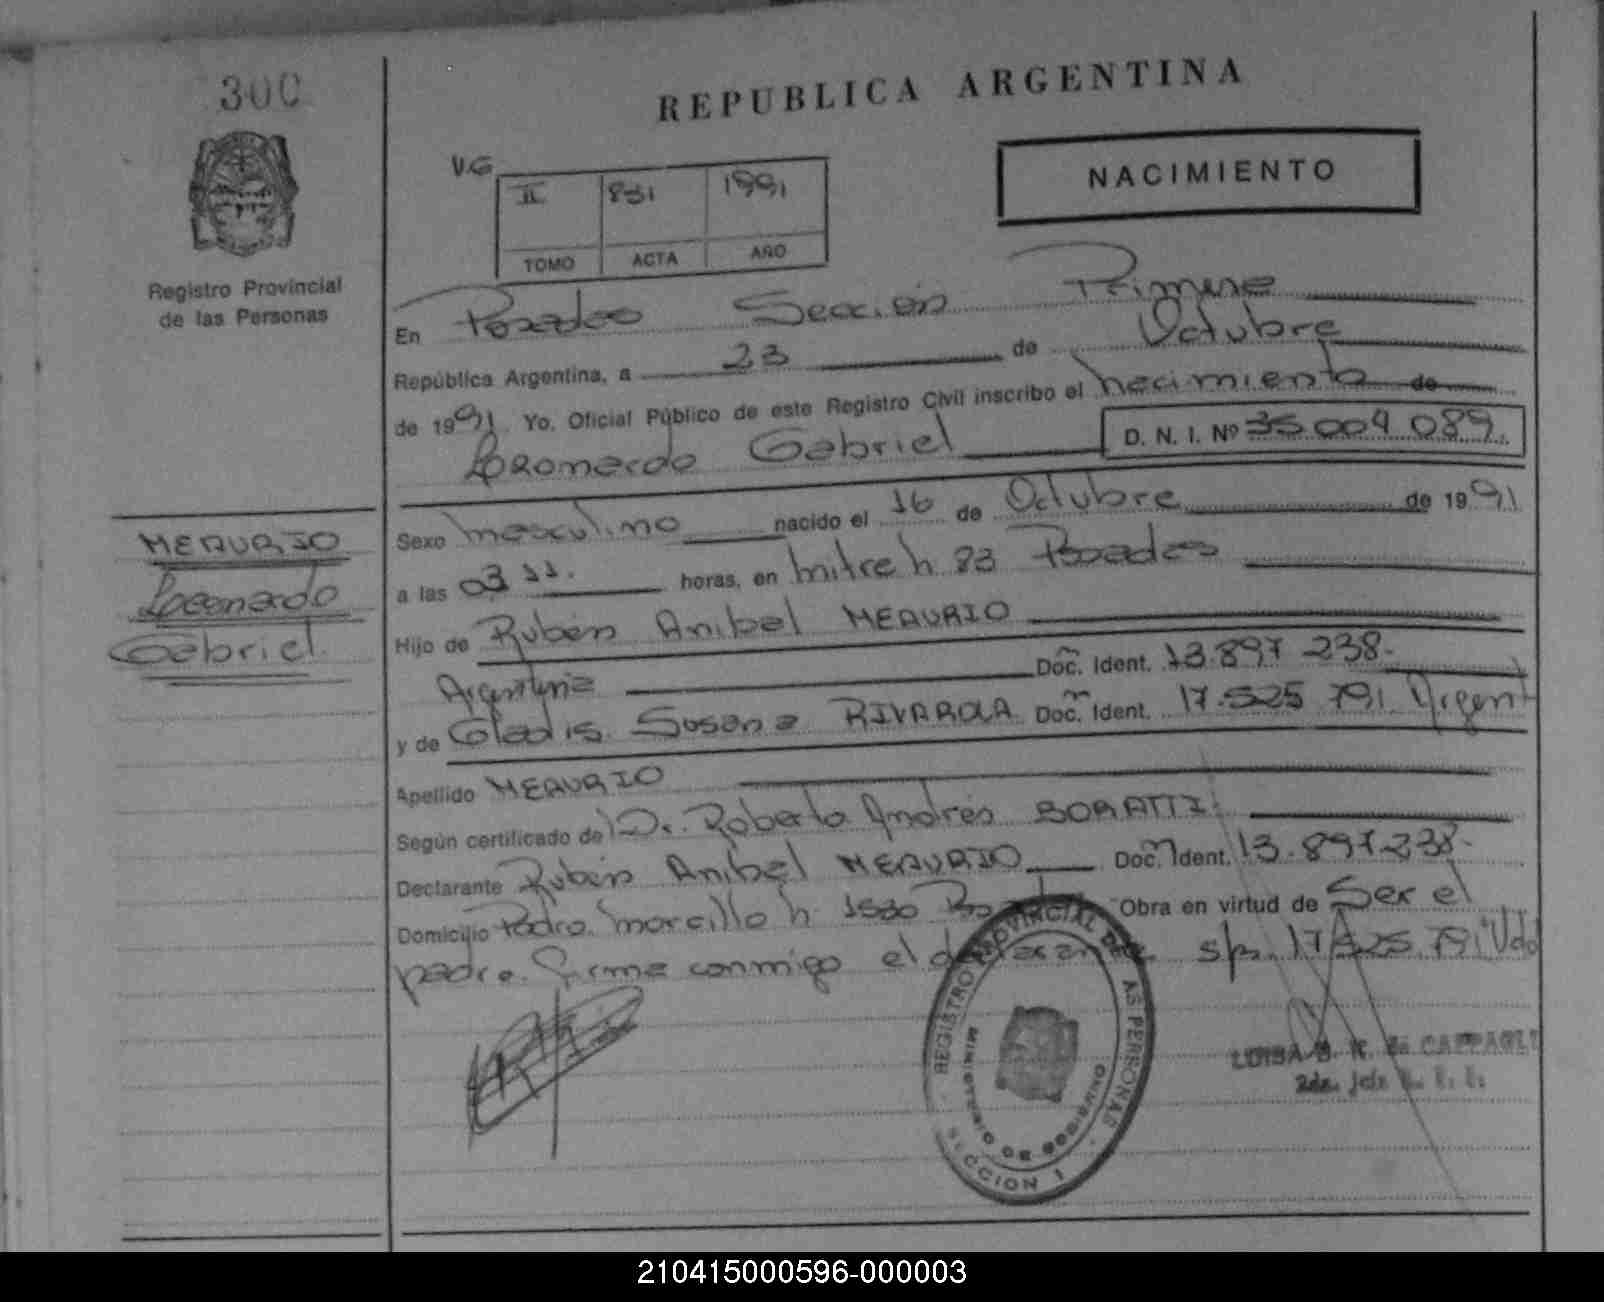 300
REPUBLICA ARGENTINA
NACIMIENTO
V.G
II 831 1991
TOMO ACTA AÑO
Registro Provincial
de las Personas
En Posadas Sección Primera
República Argentina, a 23 de Octubre
de 1991 Yo, Oficial Público de este Registro Civil inscribo el nacimiento de
Leonardo Gabriel D. N. I. Nº 35.004.089
MERURIO
Leonardo
Gabriel
Sexo masculino nacido el 16 de Octubre de 1991
a las 03 11. horas, en mitre h 83 Posadas
Hijo de Rubén Anibal MERURIO
Argentina Doc. Ident. 13.897.238.
y de Gladis Susana RIVAROLA Doc. Ident. 17.525.791 Argent
Apellido MERURIO
Según certificado de Dr. Roberto Andrés BORATTI
Declarante Rubén Anibal MERURIO Doc. Ident. 13.897.238.
Domicilio Pedro morcillo h 1530 Obra en virtud de Ser el
padre. Firma conmigo el declarante s/r. 17.525.791
REGISTRO PROVINCIAL DE LAS PERSONAS
MINISTERIO DE GOBIERNO
SECCION I
LUISA
2da. Jefe
210415000596-000003